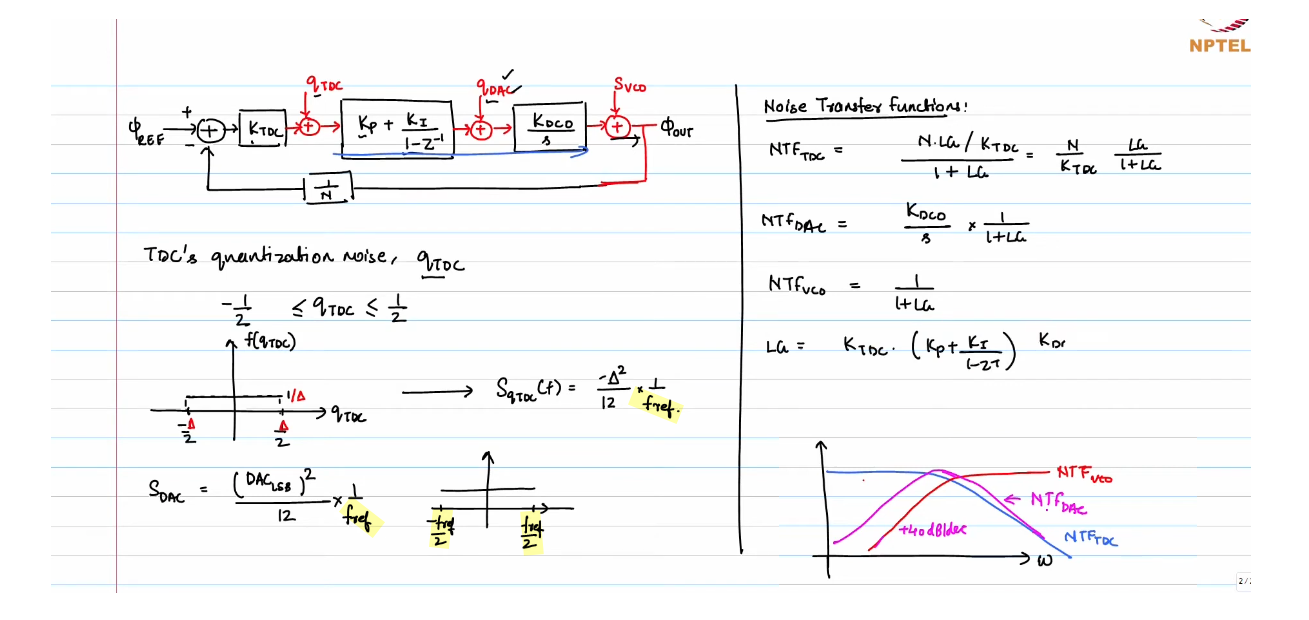 NPTEL
qTDC
qDAC ✓✓
SVCO
ϕREF + − + KTDC + Kp + KI/(1-Z^-1) + KDCO/s + ϕOUT
1/N
TDC's quantization noise, qTDC
-1/2 ≤ qTDC ≤ 1/2
f(qTDC)
1/Δ
-Δ/2 Δ/2 qTDC
SqTDC(f) = -Δ²/12 × 1/fref.
SDAC = (DACLSB)²/12 × 1/fref
-fref/2 fref/2
Noise Transfer functions:
NTFTDC = (N.LG / KTDC)/(1 + LG) = N/KTDC LG/(1+LG)
NTFDAC = KDCO/s × 1/(1+LG)
NTFVCO = 1/(1+LG)
LG = KTDC . (Kp + KI/(1-Z^-1)) KDC
NTFVCO
NTFDAC
NTFTDC
+40dB/dec
ω